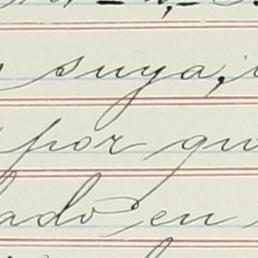 suya,
por qu
ado en